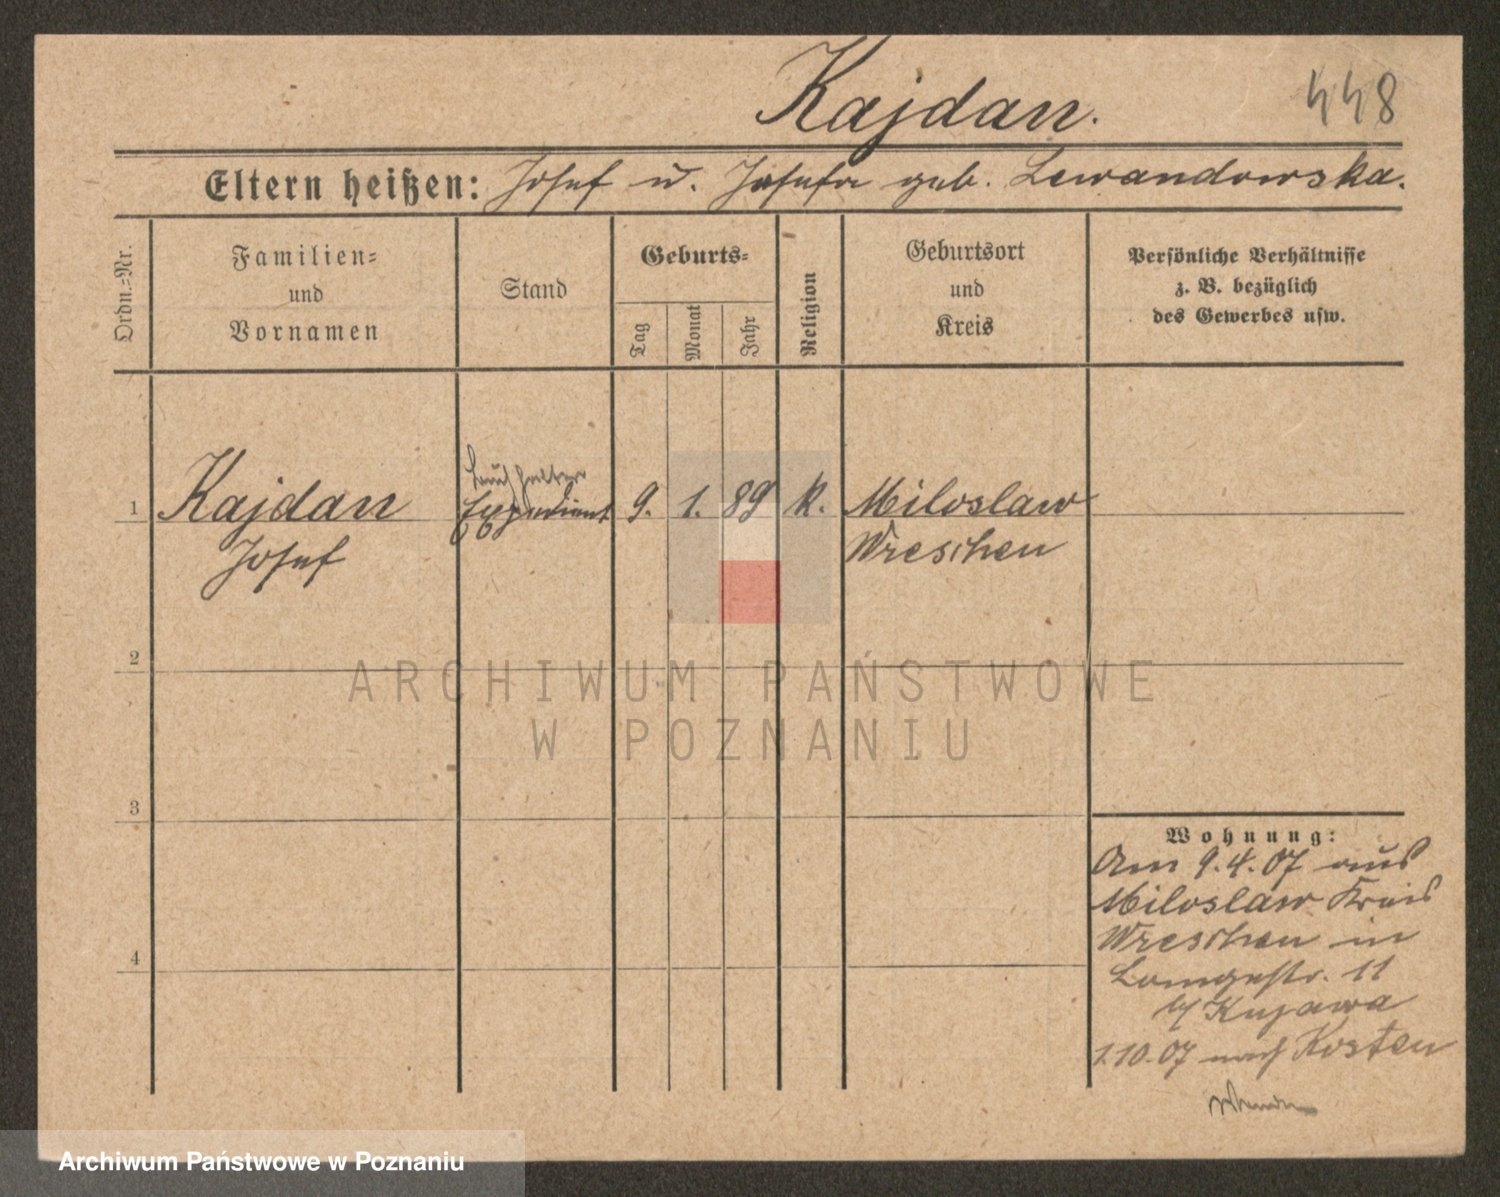 Kajdan.
448
Eltern heißen: Josef u. Josefa geb. Lewandowska.
Ordn.-Nr.
Familien-
und
Vornamen
Stand
Geburts-
Tag
Monat
Jahr
Religion
Geburtsort
und
Kreis
Persönliche Verhältnisse
z. B. bezüglich
des Gewerbes usw.
Buchhalter
1 Kajdan Expedient 9. 1. 89 k. Miloslaw
Josef Wreschen
2
ARCHIWUM PAŃSTWOWE
W POZNANIU
3
Wohnung:
Am 9.4.07 aus
Miloslaw Kreis
Wreschen in
Langestr. 11
b/ Kujawa
4
1.10.07 nach Kosten
Archiwum Państwowe w Poznaniu